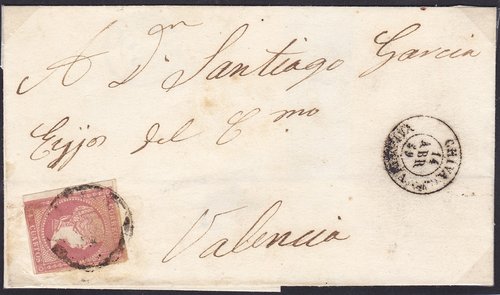 A Dn Santiago Garcia
Eijjos del Cmo
Valencia
CHIVA VALENCIA
14
ABR
59
CUARTOS